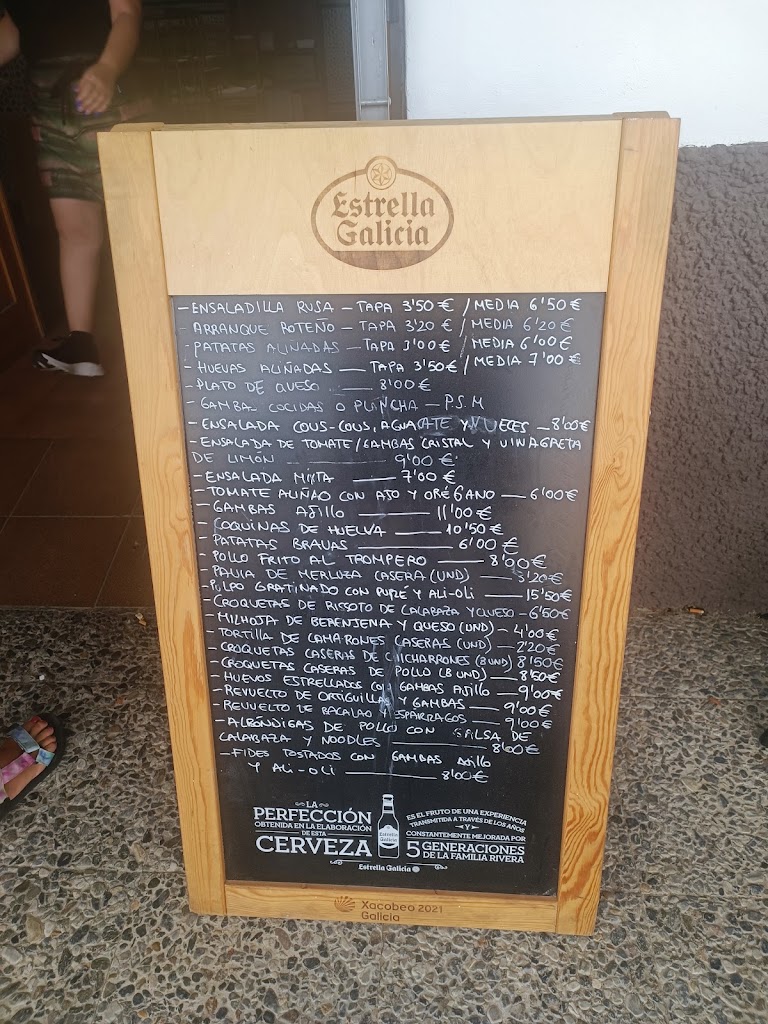 Estrella
Galicia
- ENSALADILLA RUSA - TAPA 3'50 € / MEDIA 6'50 €
- ARRANQUE ROTEÑO - TAPA 3'20 € / MEDIA 6'20 €
- PATATAS ALIÑADAS - TAPA 3'00 € / MEDIA 6'00 €
- HUEVAS ALIÑADAS — TAPA 3'50 € / MEDIA 7'00 €
- PLATO DE QUESO — 8'00 €
- GAMBAS COCIDAS O PLANCHA - P.S.M
- ENSALADA COUS-COUS, AGUACATE Y NUECES - 8'00 €
- ENSALADA DE TOMATE/GAMBAS CRISTAL Y VINAGRETA
DE LIMÓN — 9'00 €
- ENSALADA MIXTA — 7'00 €
- TOMATE ALIÑAO CON AJO Y ORÉGANO — 6'00 €
- GAMBAS AJILLO — 11'00 €
- COQUINAS DE HUELVA — 10'50 €
- PATATAS BRAVAS — 6'00 €
- POLLO FRITO AL TROMPERO — 8'00 €
- PAVIA DE MERLUZA CASERA (UND) — 3'20 €
- PULPO GRATINADO CON PURÉ Y ALI-OLI — 15'50 €
- CROQUETAS DE RISSOTO DE CALABAZA Y QUESO - 6'50 €
- MILHOJA DE BERENJENA Y QUESO (UND) - 4'00 €
- TORTILLA DE CAMARONES CASERAS (UND) — 2'20 €
- CROQUETAS CASERAS DE CHICHARRONES (8 UND) 8'50 €
- CROQUETAS CASERAS DE POLLO (8 UND) — 8'50 €
- HUEVOS ESTRELLADOS CON GAMBAS AJILLO — 9'00 €
- REVUELTO DE ORTIGUILLAS Y GAMBAS — 9'00 €
- REVUELTO DE BACALAO Y ESPARRAGOS — 9'00 €
- ALBÓNDIGAS DE POLLO CON SALSA DE
CALABAZA Y NOODLES — 8'00 €
- FIDES TOSTADOS CON GAMBAS AJILLO
Y ALI-OLI — 8'00 €
LA
PERFECCIÓN
OBTENIDA EN LA ELABORACIÓN
DE ESTA
CERVEZA
Estrella
Galicia
ES EL FRUTO DE UNA EXPERIENCIA
TRANSMITIDA A TRAVÉS DE LOS AÑOS
Y
CONSTANTEMENTE MEJORADA POR
5 GENERACIONES
DE LA FAMILIA RIVERA
Estrella Galicia
Xacobeo 2021
Galicia